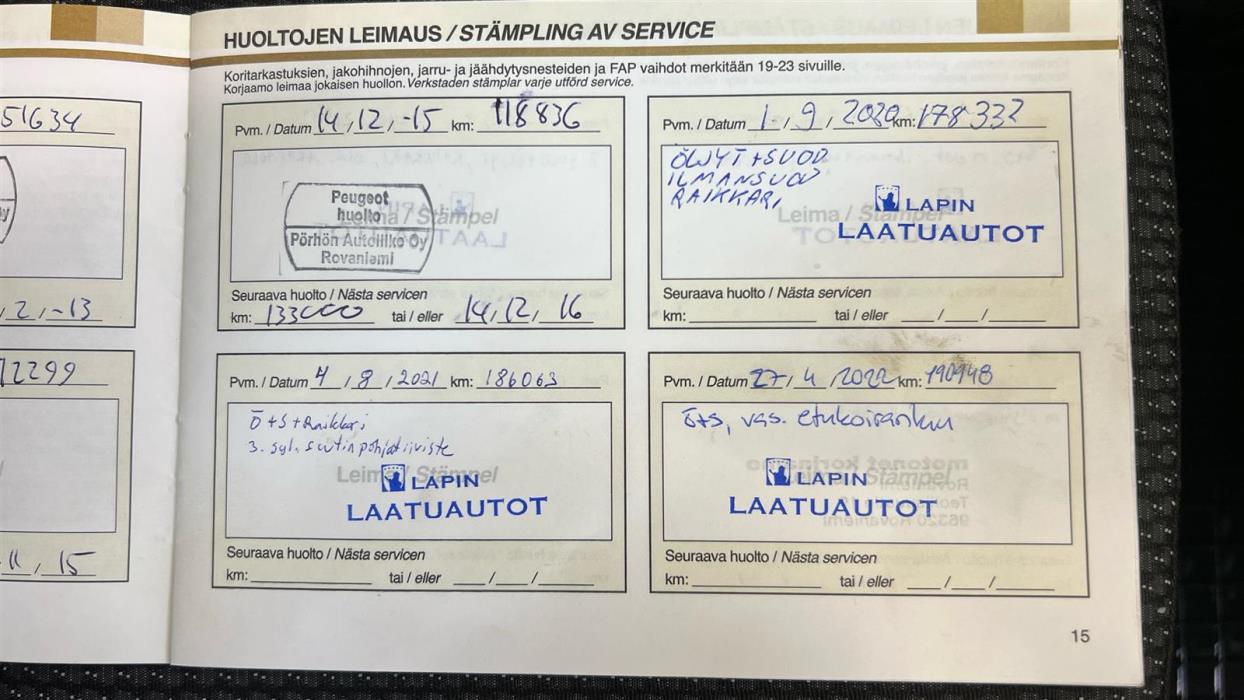 51634
2,-13
12299
11, 15
HUOLTOJEN LEIMAUS / STÄMPLING AV SERVICE
Koritarkastuksien, jakohihnojen, jarru- ja jäähdytysnesteiden ja FAP vaihdot merkitään 19-23 sivuille.
Korjaamo leimaa jokaisen huollon. Verkstaden stämplar varje utförd service.
Pvm. / Datum 14,12,-15 km: 118836
Leima / Stämpel
Peugeot
huolto
Pörhön Autoliike Oy
Rovaniemi
Seuraava huolto / Nästa servicen
km: 133000 tai / eller 14,12, 16
Pvm. / Datum 1, 9, 2020 km: 178332
ÖLJYT+SUOD
ILMANSUOD
RAIKKARI
Leima / Stämpel
LAPIN
LAATUAUTOT
Seuraava huolto / Nästa servicen
km: tai / eller / /
Pvm. / Datum 4 / 8 / 2021 km: 186063
Ö+S+Raikkari
3. syl. suutin pohjatiiviste
Leima / Stämpel
LAPIN
LAATUAUTOT
Seuraava huolto / Nästa servicen
km: tai / eller / /
Pvm. / Datum 27 / 4 / 2022 km: 190948
Ö+S, vas. etukoiranluu
Leima / Stämpel
LAPIN
LAATUAUTOT
Seuraava huolto / Nästa servicen
km: tai / eller / /
15